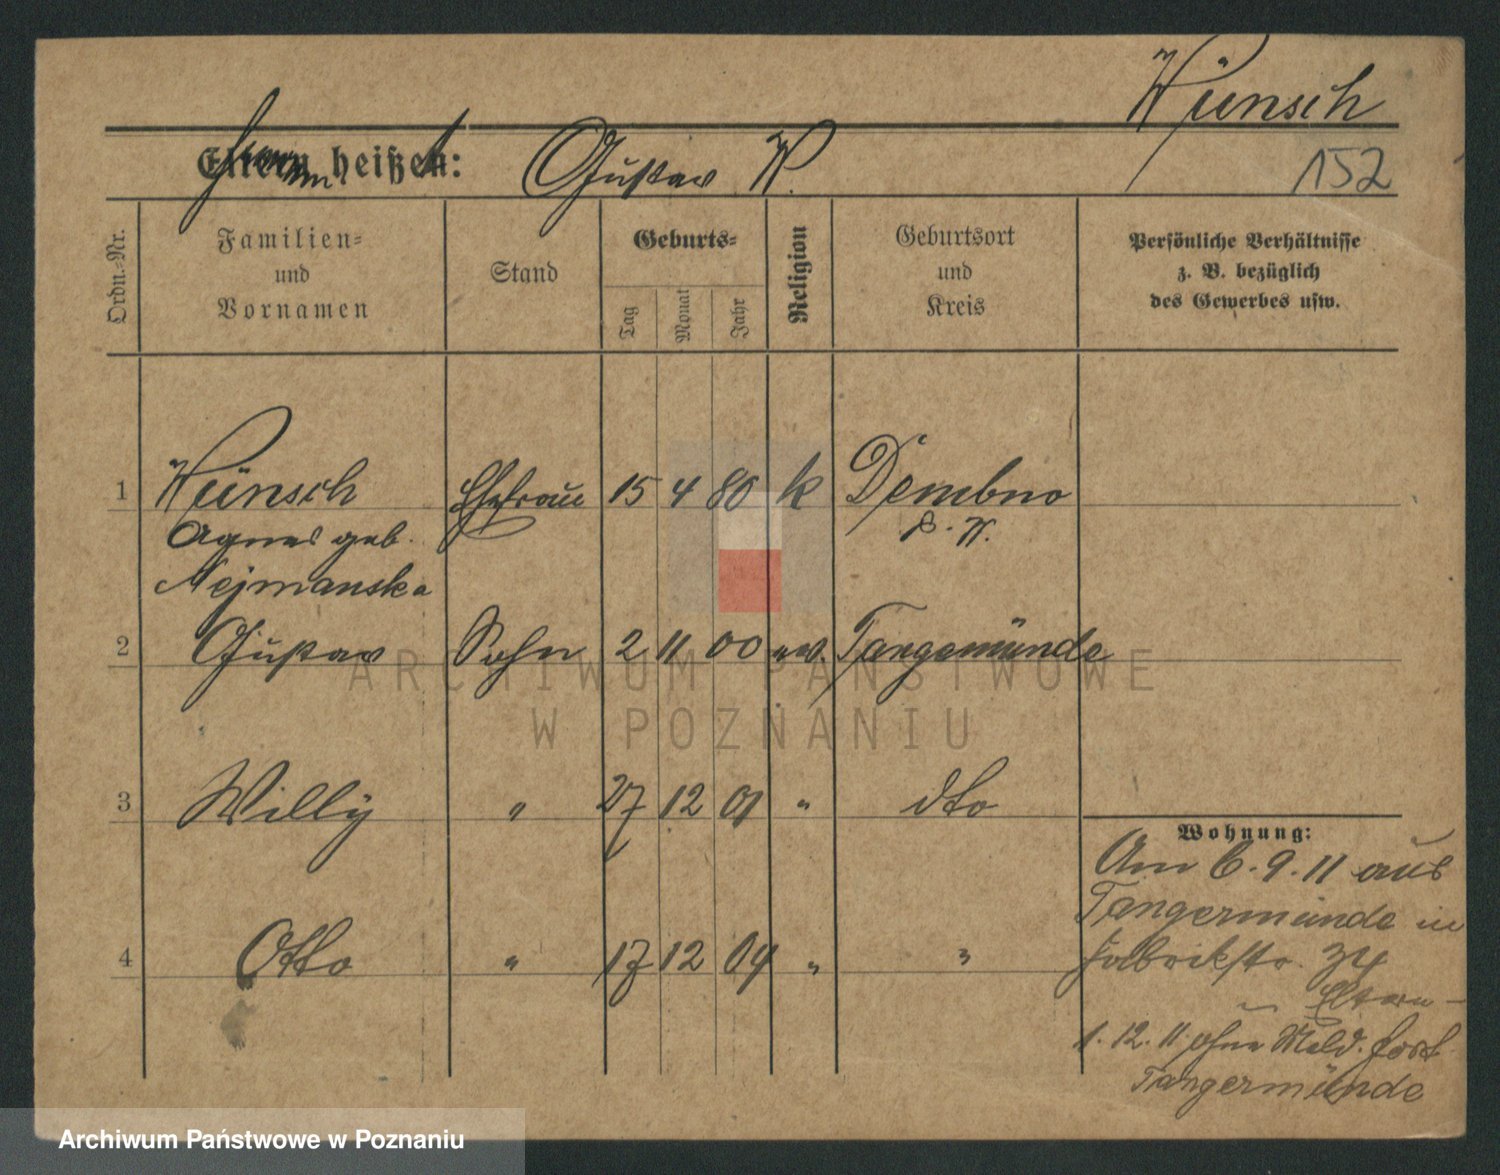 Wünsch
Eltern heißen: Gustav W.
152
Ordn.-Nr.
Familien-
und
Vornamen
Stand
Geburts-
Tag
Monat
Jahr
Religion
Geburtsort
und
Kreis
Persönliche Verhältnisse
z. B. bezüglich
des Gewerbes usw.
1 Wünsch Ehefrau 15 4 80 k Dembno
Agnes geb.
Nejmanska
2 Gustav Sohn 2 11 00 ev. Tangemünde
ARCHIWUM PAŃSTWOWE
W POZNANIU
3 Willy " 27 12 01 " dto
Wohnung:
Am 6.9.11 aus
Tangermünde in
Fabrikstr. 34
4 Otto " 17 12 04 " "
Eltern
1.12.11 ohne Meld. fort
Tangermünde
Archiwum Państwowe w Poznaniu